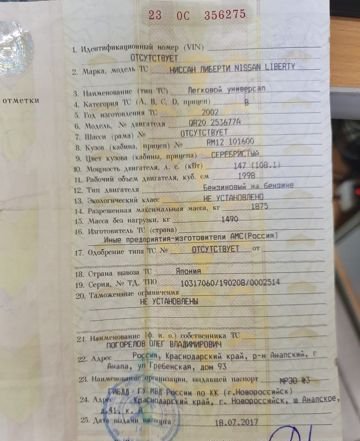 23 ОС 356275
1. Идентификационный номер (VIN)
ОТСУТСТВУЕТ
2. Марка, модель ТС НИССАН ЛИБЕРТИ NISSAN LIBERTY
3. Наименование (тип ТС) Легковой универсал
отметки
4. Категория ТС (A, B, C, D, прицеп) B
5. Год изготовления ТС 2002
6. Модель, № двигателя QR20 251677A
7. Шасси (рама) № ОТСУТСТВУЕТ
8. Кузов (кабина, прицеп) № RM12 101600
9. Цвет кузова (кабины, прицепа) СЕРЕБРИСТЫЙ
10. Мощность двигателя, л. с. (кВт) 147 (108.1)
11. Рабочий объем двигателя, куб. см 1998
12. Тип двигателя Бензиновый на бензине
13. Экологический класс НЕ УСТАНОВЛЕНО
14. Разрешенная максимальная масса, кг 1875
15. Масса без нагрузки, кг 1490
16. Изготовитель ТС (страна)
Иные предприятия-изготовители АМС(Россия)
17. Одобрение типа ТС № ОТСУТСТВУЕТ от
18. Страна вывоза ТС Япония
19. Серия, № ТД, ТПО 10317060/190208/0002514
20. Таможенные ограничения
НЕ УСТАНОВЛЕНЫ
21. Наименование (ф. и. о.) собственника ТС
ПОГОРЕЛОВ ОЛЕГ ВЛАДИМИРОВИЧ
22. Адрес Россия, Краснодарский край, р-н Анапский, г
Анапа, ул Гребенская, дом 93
23. Наименование организации, выдавшей паспорт МРЭО #3
ГИБДД ГУ МВД России по КК (г.Новороссийск)
24. Адрес Краснодарский край, г. Новороссийск, ш Анапское,
25. Дата выдачи паспорта 18.07.2017